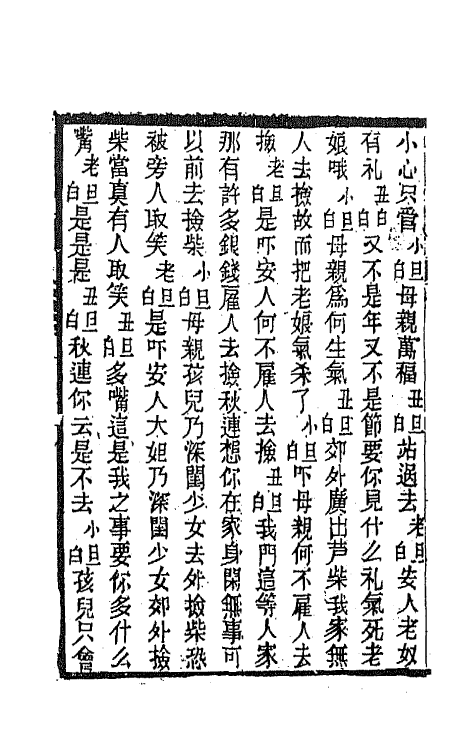 小心只管小旦白母親萬福丑旦白站過去老旦白安人老奴
有礼丑白又不是年又不是節要你見什么礼氣死老
娘哦小旦白母親為何生氣丑旦白郊外廣出芦柴我家無
人去撿故而把老娘氣杀了小旦白吓母親何不雇人去
撿老旦白是吓安人何不雇人去撿丑旦白我門這等人家
那有許多銀錢雇人去撿秋連想你在家身閑無事可
以前去撿柴小旦白母親孩兒乃深閨少女去外撿柴恐
被旁人取笑老旦白是吓安人大姐乃深閨少女郊外撿
柴當真有人取笑丑旦白多嘴這是我之事要你多什么
嘴老旦白是是是丑旦白秋連你云是不去小旦白孩兒只會